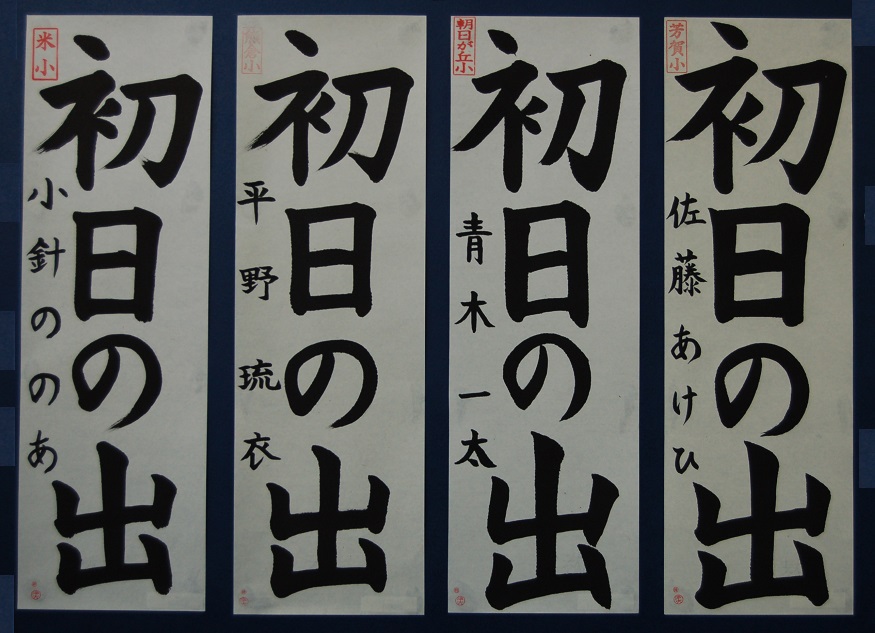 芳賀小
初日の出
佐藤あけひ
朝日が丘小
初日の出
青木一太
初日の出
平野琉衣
米小
初日の出
小針ののあ